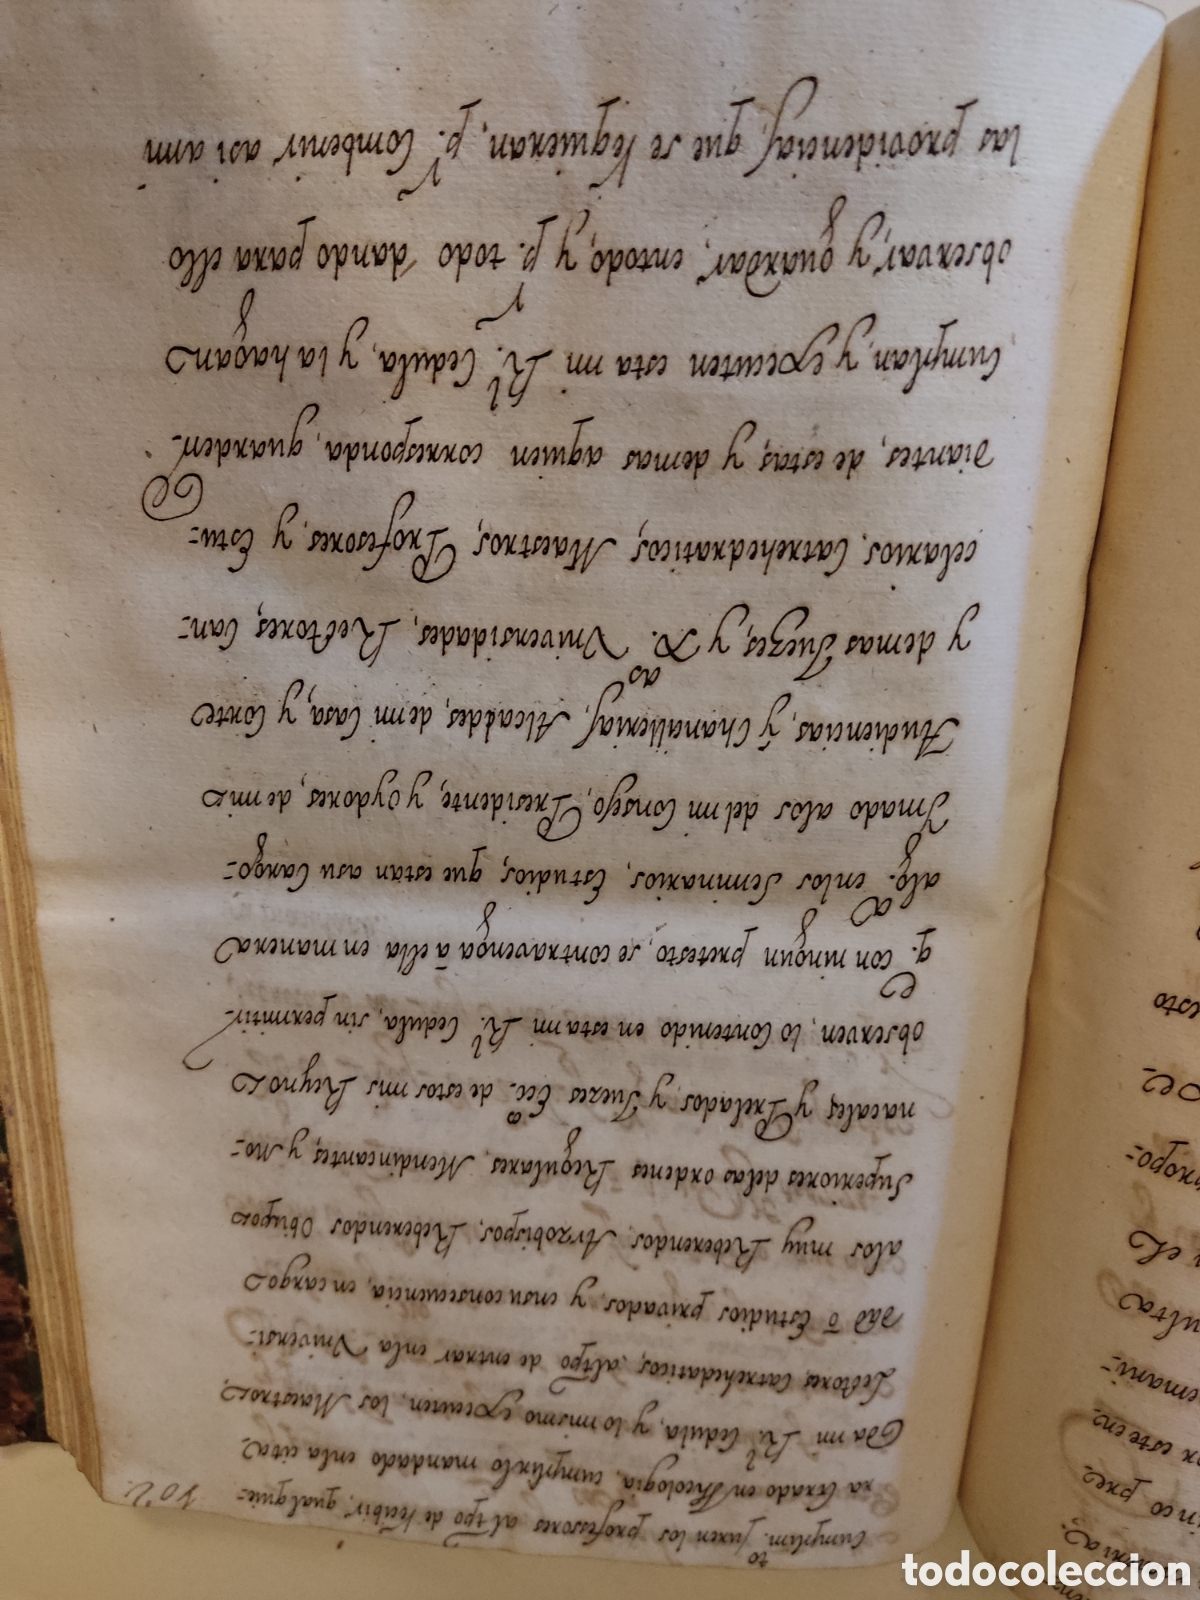 102.
Cumplim.to juren los profesores al tpõ de recibir, qualquie=
ra Grado en Theologia, cumplirlo mandado enla cita-
da mi R.l Cedula, y lo mismo executen, los Maestros,
Lectores, Catrehedaticos, altpõ de entrar enla Vniversi=
dad ō Estudios privados, y ensu consecuencia, encargo
alos muy Reberendos, Arzobispos, Reberendos Obispos
Superiores delas ordenes Regulares, Mendincantes, y Mo=
nacales, y Prelados, y Juezes Ecc.os de estos mis Reynos
observen, lo Contenido en esta mi R.l Cedula, sin permitir
q.e con ningun pretesto, se contravenga ā ella en manera
alg.a enlos Seminarios, Estudios, que estan asu Cargo=
Ymado alos del mi Consejo, Presidente, y oydores, de mis
Audiencias, y Chancillerias, Alcaldes, de mi Casa, y Corte
y demas Juezes, y Vniversidades, Rectores, Can=
celarios, Catrehedraticos, Maestros, Profesores, y Estu=
diantes, de estas, y demas aquien corresponda, guarden
Cumplan, y executen esta mi R.l Cedula, y la hagan
observar, y guardar, entodo, y p.r todo dando para ello
las providencias, que se requieran, p.r Combenir asi ami
esto
ropo=
el
ulta
emani=
este en
pre
todocoleccion